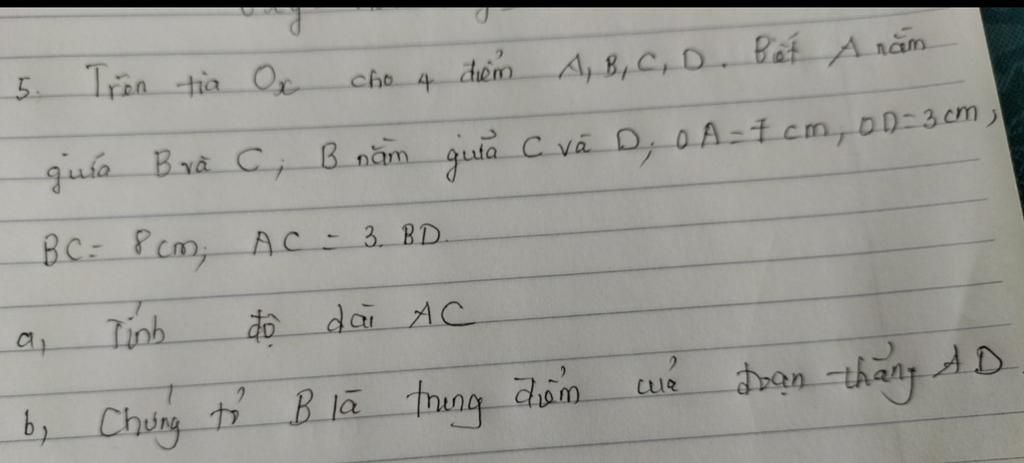 5. Trên tia Ox cho 4 điểm A, B, C, D. Biết A nằm
giữa B và C; B nằm giữa C và D; OA = 7 cm, OD = 3 cm,
BC = 8 cm; AC = 3. BD.
a, Tính độ dài AC
b, Chứng tỏ B là trung điểm của đoạn thẳng AD